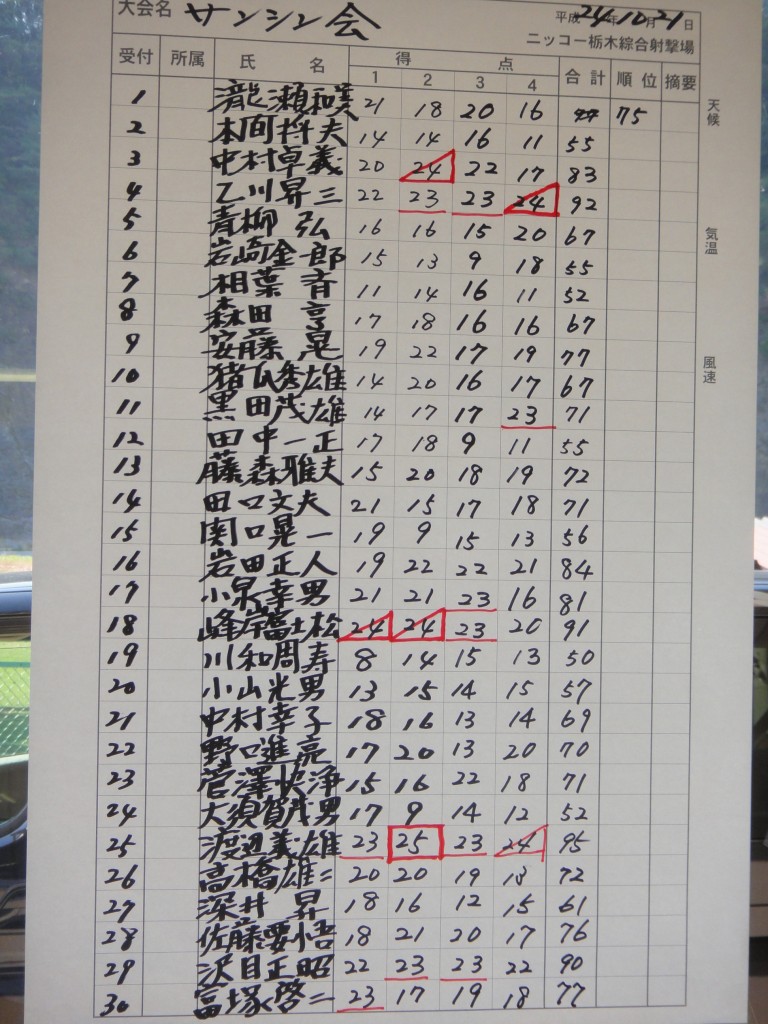 大会名 サンシン会 平成24年10月21日
ニッコー栃木綜合射撃場
受付 所属 氏名 得点 合計 順位 摘要
1 2 3 4
天候
気温
風速
1 瀧瀬和美 21 18 20 16 75
2 本间将夫 14 14 16 11 55
3 中村卓義 20 24 22 17 83
4 乙川昇三 22 23 23 24 92
5 青柳 弘 16 16 15 20 67
6 岩崎金一郎 15 13 9 18 55
7 相葉 育 11 14 16 11 52
8 森田 亨 17 18 16 16 67
9 安藤 晃 19 22 17 19 77
10 猪瓜秀雄 14 20 16 17 67
11 黒田茂雄 14 17 17 23 71
12 田中一正 17 18 9 11 55
13 藤森雅夫 15 20 18 19 72
14 田口文夫 21 15 17 18 71
15 関口晃一 19 9 15 13 56
16 岩田正人 19 22 22 21 84
17 小泉幸男 21 21 23 16 81
18 峰岸富士松 24 24 23 20 91
19 川和周寿 8 14 15 13 50
20 小山光男 13 15 14 15 57
21 中村幸子 18 16 13 14 69
22 野口進亮 17 20 13 20 70
23 菅澤快浄 15 16 22 18 71
24 大須賀茂男 17 9 14 12 52
25 渡辺義雄 23 25 23 24 95
26 高橋雄二 20 20 19 13 72
27 深井 昇 18 16 12 15 61
28 佐藤要悟 18 21 20 17 76
29 沢目正昭 22 23 23 22 90
30 富塚啓二 23 17 19 18 77